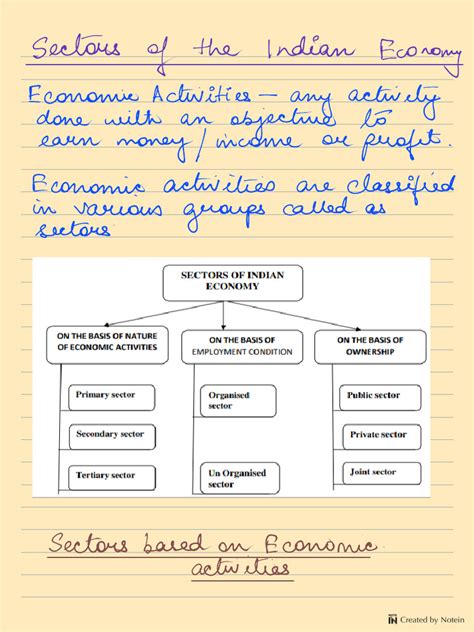 Sectors of the Indian Economy
Economic Activities — any activity
done with an objective to
earn money/income or profit.
Economic activities are classified
in various groups called as
sectors
SECTORS OF INDIAN
ECONOMY
ON THE BASIS OF NATURE
OF ECONOMIC ACTIVITIES
ON THE BASIS OF
EMPLOYMENT CONDITION
ON THE BASIS OF
OWNERSHIP
Primary sector
Secondary sector
Tertiary sector
Organised
sector
Un Organised
sector
Public sector
Private sector
Joint sector
Sectors based on Economic
activities
NOTE
IN Created by Notein